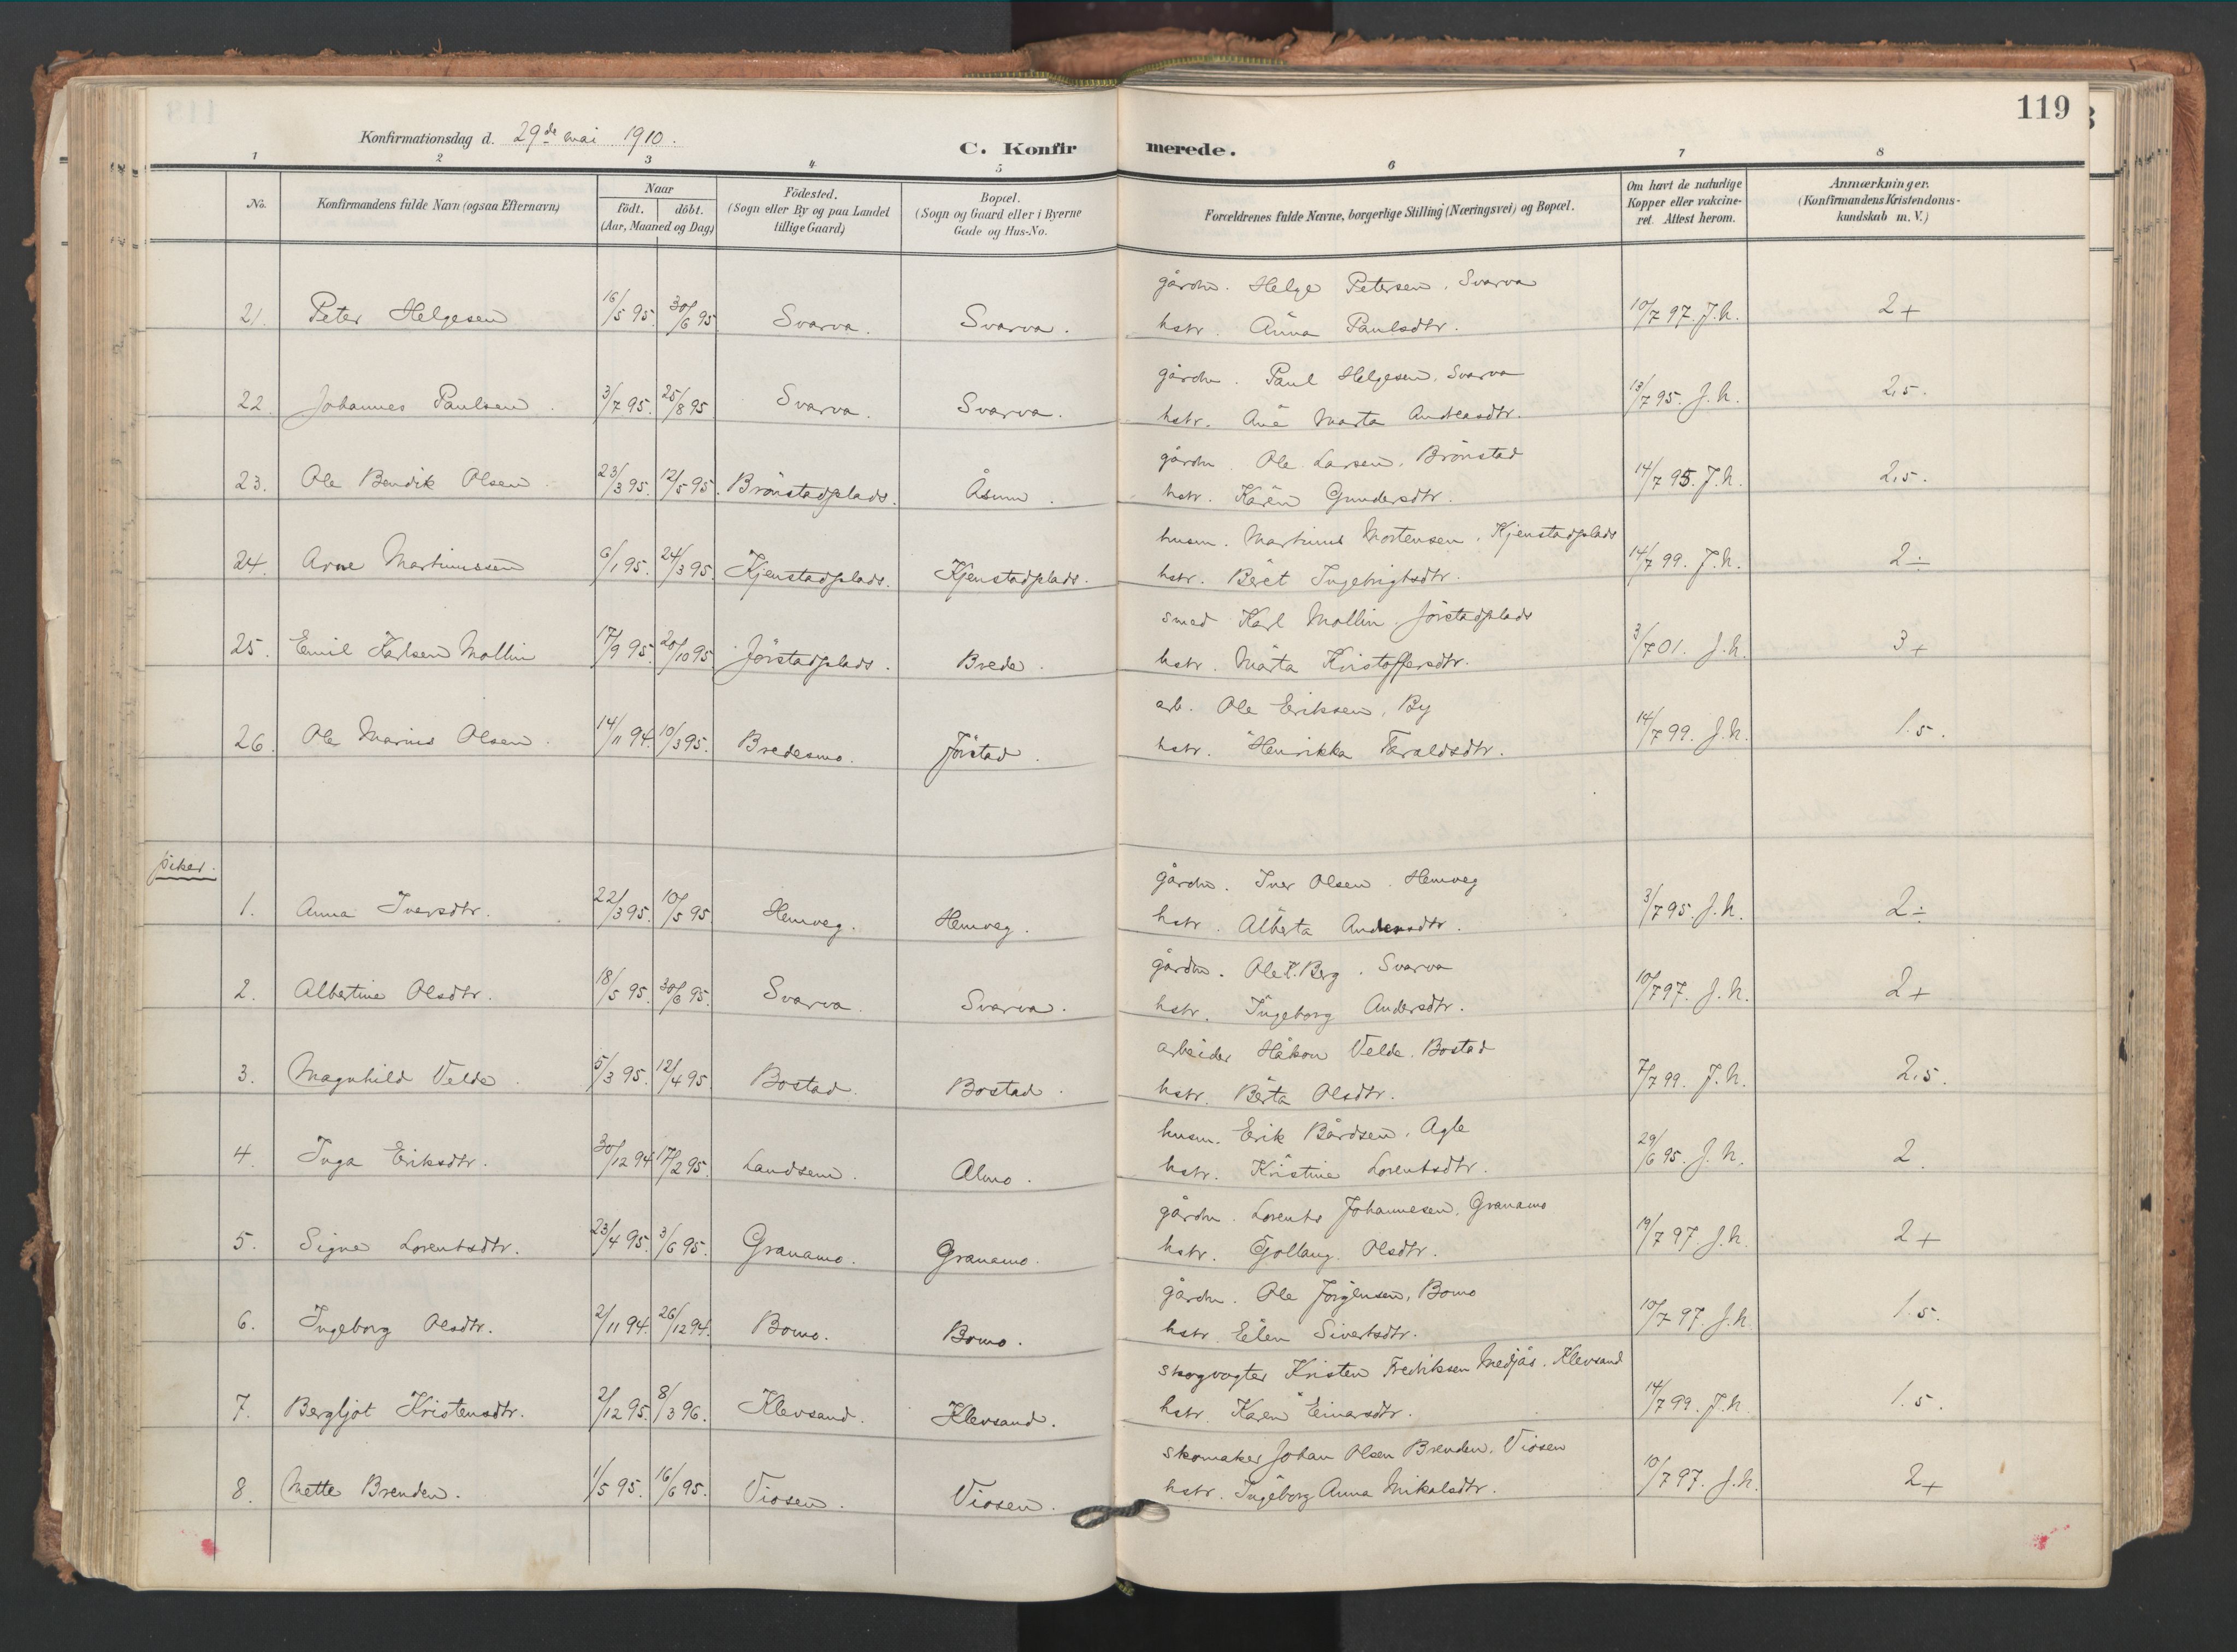 119
Konfirmationsdag d. 29de mai 1910.
C. Konfirmerede.
1 2 3 4 5 6 7 8
No. Konfirmandens fulde Navn (ogsaa Efternavn) Naar født. døbt. (Aar, Maaned og Dag) Födested. (Sogn eller By og paa Landet tillige Gaard) Bopæl. (Sogn og Gaard eller i Byerne Gade og Hus-No. Forældrenes fulde Navne, borgerlige Stilling (Næringsvei) og Bopæl. Om havt de naturlige Kopper eller vakcineret. Attest herom. Anmærkninger. (Konfirmandens Kristendomskundskab m. V.)
gårdm. Helge Petersen, Svarva
21. Peter Helgesen 16/5 95. 30/6 95 Svarva. Svarva. hstr. Anna Paulsdtr. 10/7 97. J.h. 2+
gårdm. Paul Helgesen, Svarva
22. Johannes Paulsen. 3/7 95. 25/8 95 Svarva. Svarva. hstr. Ane Marta Andreasdtr. 13/7 95. J.h. 2,5.
gårdm. Ole Larsen, Brönstad
23. Ole Bendik Olsen 23/3 95. 12/5 95. Brönstadplads. Åsum. hstr. Karen Gundersdtr. 14/7 95. J.h. 2,5.
husm. Martinus Mortensen, Kjenstadplads
24. Arne Martinussen 6/1 95. 24/3 95. Kjenstadplads. Kjenstadplads. hstr. Beret Ingebrigtsdtr. 14/7 99. J.h. 2÷
smed Karl Mollin, Jörstadplads
25. Emil Karlsen Mollin 17/9 95. 20/10 95 Jörstadplads. Brede. hstr. Marta Kristoffersdtr. 3/7 01. J.h. 3+
arb. Ole Eriksen, By
26. Ole Marius Olsen. 14/11 94. 10/3 95. Bredesmo. Jörstad. hstr. Henrikka Taraldsdtr. 14/7 99. J.h. 1.5.
piker.
gårdm. Iver Olsen. Hemveg
1. Anna Iversdtr. 22/3 95. 10/5 95 Hemveg. Hemveg. hstr. Alberta Andersdtr. 3/7 95. J.h. 2÷
gårdm. Ole T. Berg. Svarva
2. Albertine Olsdtr. 18/5 95. 30/6 95. Svarva Svarva. hstr. Ingeborg Andersdtr. 10/7 97. J.h. 2+
arbeider Håkon Velde. Bostad
3. Magnhild Velde. 5/3 95. 12/4 95 Bostad. Bostad. hstr. Berta Olsdtr. 7/7 99. J.h. 2,5.
husm. Erik Bårdsen, Agle
4. Inga Eriksdtr. 30/12 94 17/2 95. Landsem. Almo. hstr. Kristine Lorentsdtr. 29/6 95. J.h. 2.
gårdm. Lorents Johannesen, Granamo
5. Signe Lorentsdtr. 23/4 95. 3/6 95. Granamo. Granamo. hstr. Gollaug Olsdtr. 19/7 97. J.h. 2+
gårdm. Ole Jörgensen, Bomo
6. Ingeborg Olsdtr. 2/11 94. 26/12 94. Bomo. Bomo. hstr. Elen Sivertsdtr. 10/7 97. J.h. 1.5.
skogvogter Kristen Fredriksen Medjås. Klevsand
7. Bergljot Kristensdtr. 2/12 95. 8/3 96. Klevsand. Klevsand. hstr. Karen Einarsdtr. 14/7 99. J.h. 1.5.
skomaker Johan Olsen Brenden. Viosen
8. Mette Brenden. 1/5 95. 16/6 95. Viosen. Viosen. hstr. Ingeborg Anna Mikalsdtr. 10/7 97. J.h. 2+